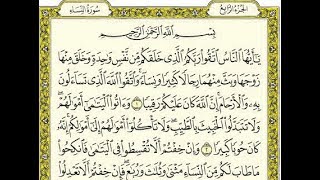 الجزء الرابع
سورة النساء
بسم الله الرحمن الرحيم
يَٰٓأَيُّهَا ٱلنَّاسُ ٱتَّقُوا۟ رَبَّكُمُ ٱلَّذِى خَلَقَكُم مِّن نَّفْسٍ وَٰحِدَةٍ وَخَلَقَ مِنْهَا
زَوْجَهَا وَبَثَّ مِنْهُمَا رِجَالًا كَثِيرًا وَنِسَآءً وَٱتَّقُوا۟ ٱللَّهَ ٱلَّذِى تَسَآءَلُونَ
بِهِۦ وَٱلْأَرْحَامَ إِنَّ ٱللَّهَ كَانَ عَلَيْكُمْ رَقِيبًا ١ وَءَاتُوا۟ ٱلْيَتَٰمَىٰٓ أَمْوَٰلَهُمْ
وَلَا تَتَبَدَّلُوا۟ ٱلْخَبِيثَ بِٱلطَّيِّبِ وَلَا تَأْكُلُوٓا۟ أَمْوَٰلَهُمْ إِلَىٰٓ أَمْوَٰلِكُمْ إِنَّهُۥ
كَانَ حُوبًا كَبِيرًا ٢ وَإِنْ خِفْتُمْ أَلَّا تُقْسِطُوا۟ فِى ٱلْيَتَٰمَىٰ فَٱنكِحُوا۟
مَا طَابَ لَكُم مِّنَ ٱلنِّسَآءِ مَثْنَىٰ وَثُلَٰثَ وَرُبَٰعَ فَإِنْ خِفْتُمْ أَلَّا تَعْدِلُوا۟